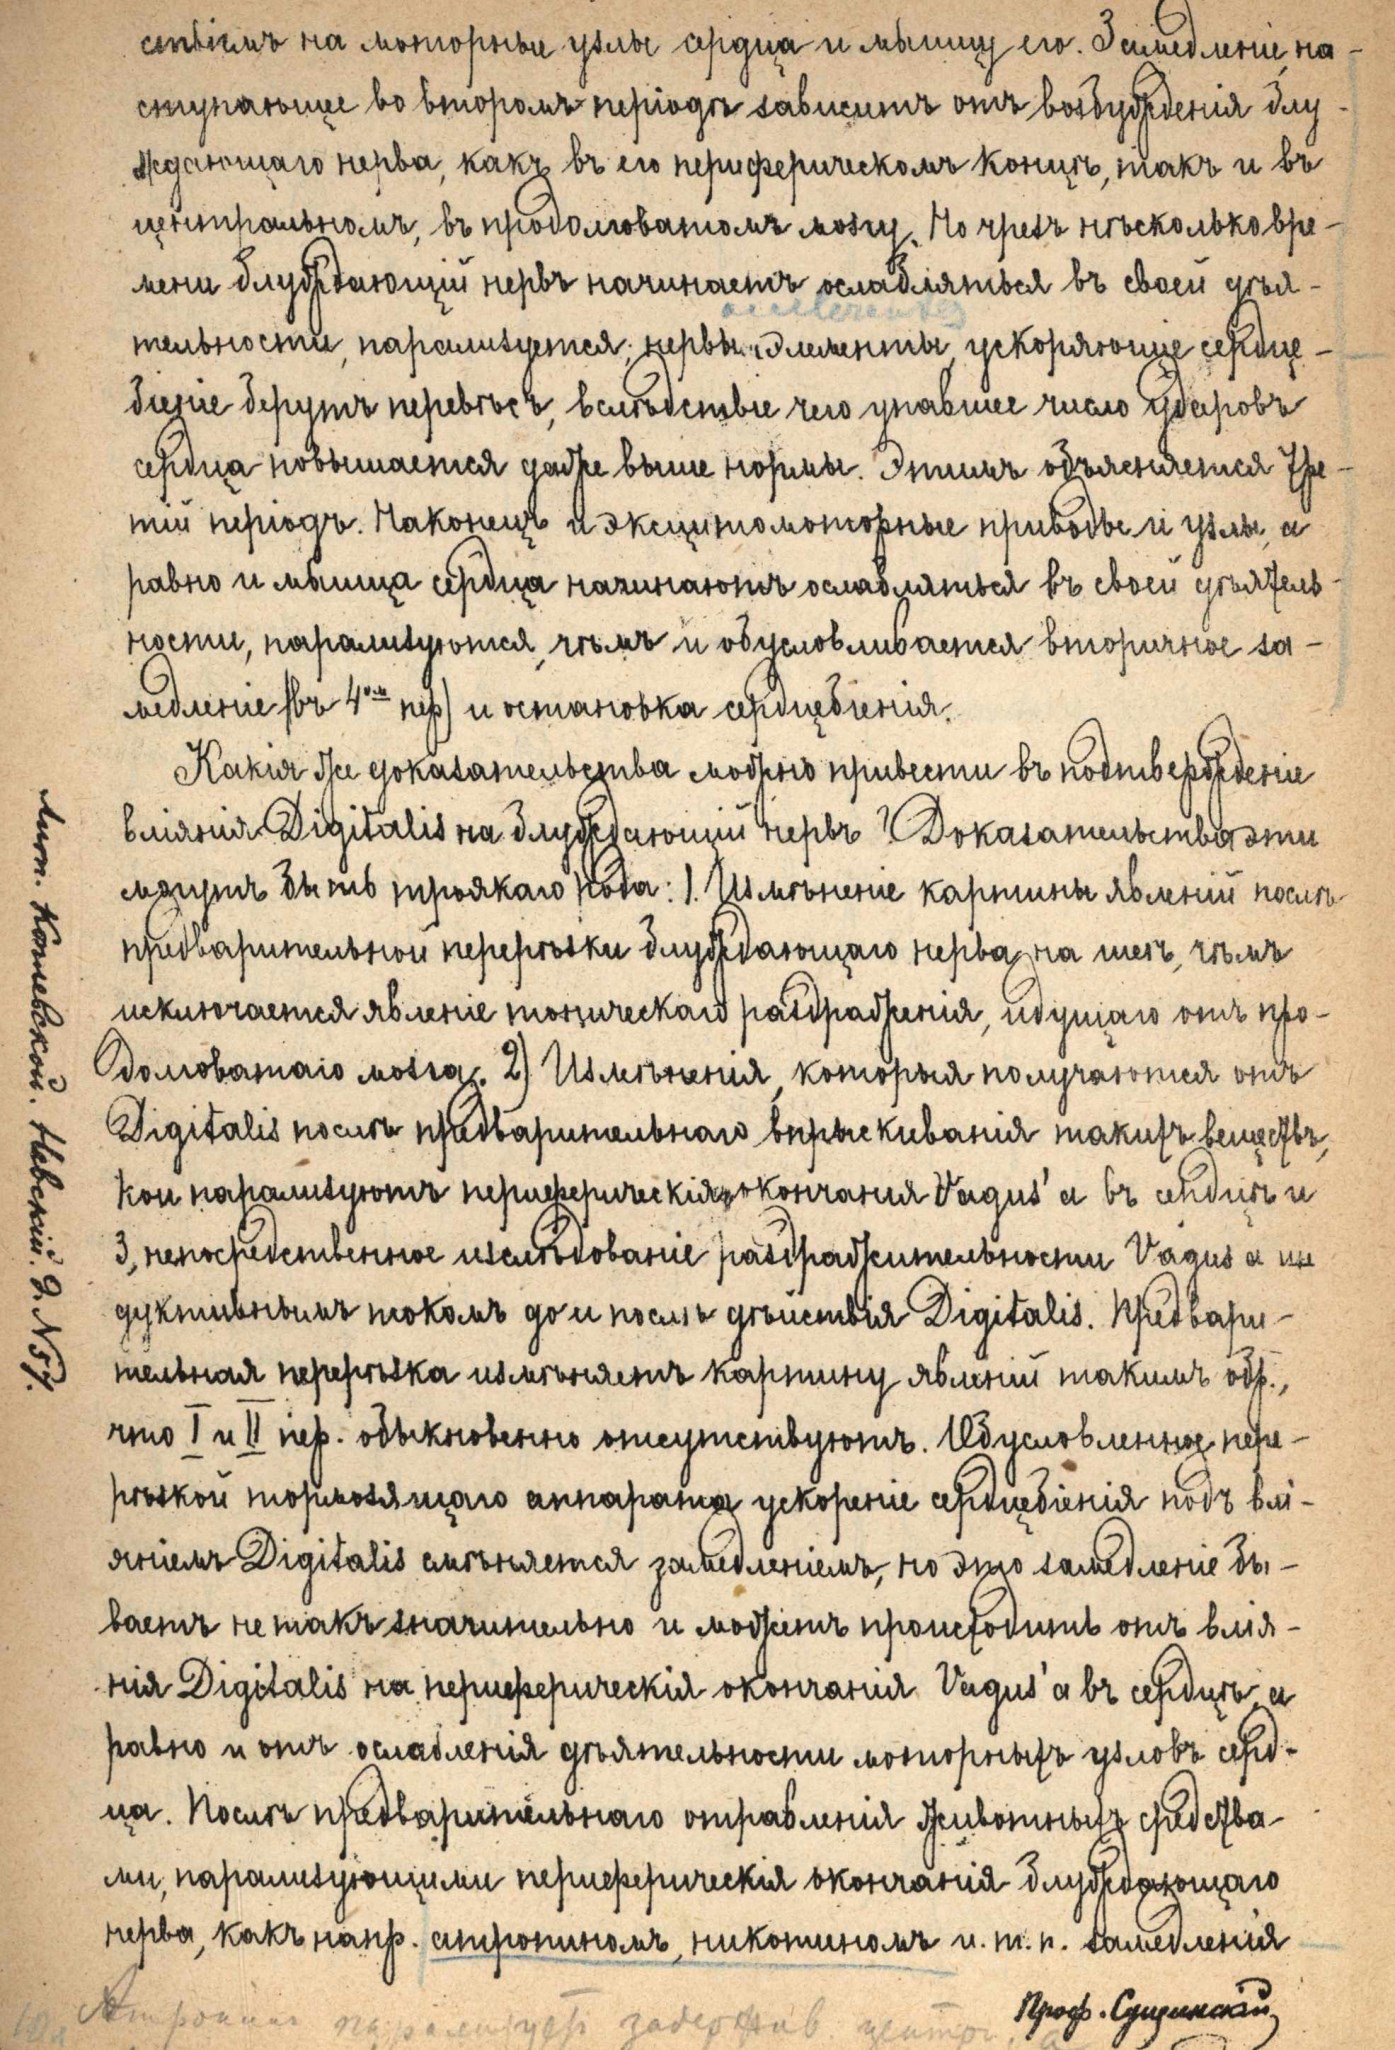 ствіемъ на моторные узлы сердца и мышцу его. Замедленіе, на-
ступающее во второмъ періодѣ зависитъ отъ возбужденія блу-
ждающаго нерва, какъ въ его периферическомъ концѣ, такъ и въ
центральномъ, въ продолговатомъ мозгу. Но чрезъ нѣсколько вре-
мени блуждающій нервъ начинаетъ ослабляться въ своей дѣя-
тельности, парализуется; нервы. элементы, ускоряющіе сердце-
біеніе берутъ перевѣсъ, вслѣдствіе чего упавшее число ударовъ
сердца повышается даже выше нормы. Этимъ объясняется Тре-
тій періодъ. Наконецъ и эксцитомоторные приводы и узлы, а
равно и мышца сердца начинаютъ ослабляться въ своей дѣятель-
ности, парализуются, чѣмъ и обусловливается вторичное за-
медленіе (въ 4омъ пер) и остановка сердцебіенія.
Какія же доказательства можно привести въ подтвержденіе
вліянія Digitalis на блуждающій нервъ? Доказательства эти
могутъ быть троякаго рода: 1. Измѣненіе картины явленій послѣ
предварительной перерѣзки блуждающаго нерва на шеѣ, чѣмъ
исключается явленіе тоническаго раздраженія, идущаго отъ про-
долговатаго мозга. 2) Измѣненія, которыя получаются отъ
Digitalis послѣ предварительнаго впрыскиванія такихъ веществъ,
кои парализуютъ периферическія окончанія Vagus'a въ сердцѣ и
3, непосредственное изслѣдованіе раздражительности Vagus a ин
дуктивнымъ токомъ до и послѣ дѣйствія Digitalis. Предвари-
тельная перерѣзка измѣняетъ картину явленій такимъ обр.,
что I и II пер. обыкновенно отсутствуютъ. Обусловленное пере-
рѣзкой тормозящаго аппарата ускореніе сердцебіенія подъ влі-
яніемъ Digitalis смѣняется замедленіемъ, но это замедленіе бы-
ваетъ не такъ значительно и можетъ происходить отъ влія-
нія Digitalis на периферическія окончанія Vagus'a въ сердцѣ, а
равно и отъ ослабленія дѣятельности моторныхъ узловъ серд-
ца. Послѣ предварительнаго отравленія животныхъ средства-
ми, парализующими периферическія окончанія блуждающаго
нерва, какъ напр. атропиномъ, никотиномъ и. т. п. замедленія
Проф. Сущинскій
Атропинъ парализует задержив. центры, а
Лит. Комевской. Невскій. д. N57.